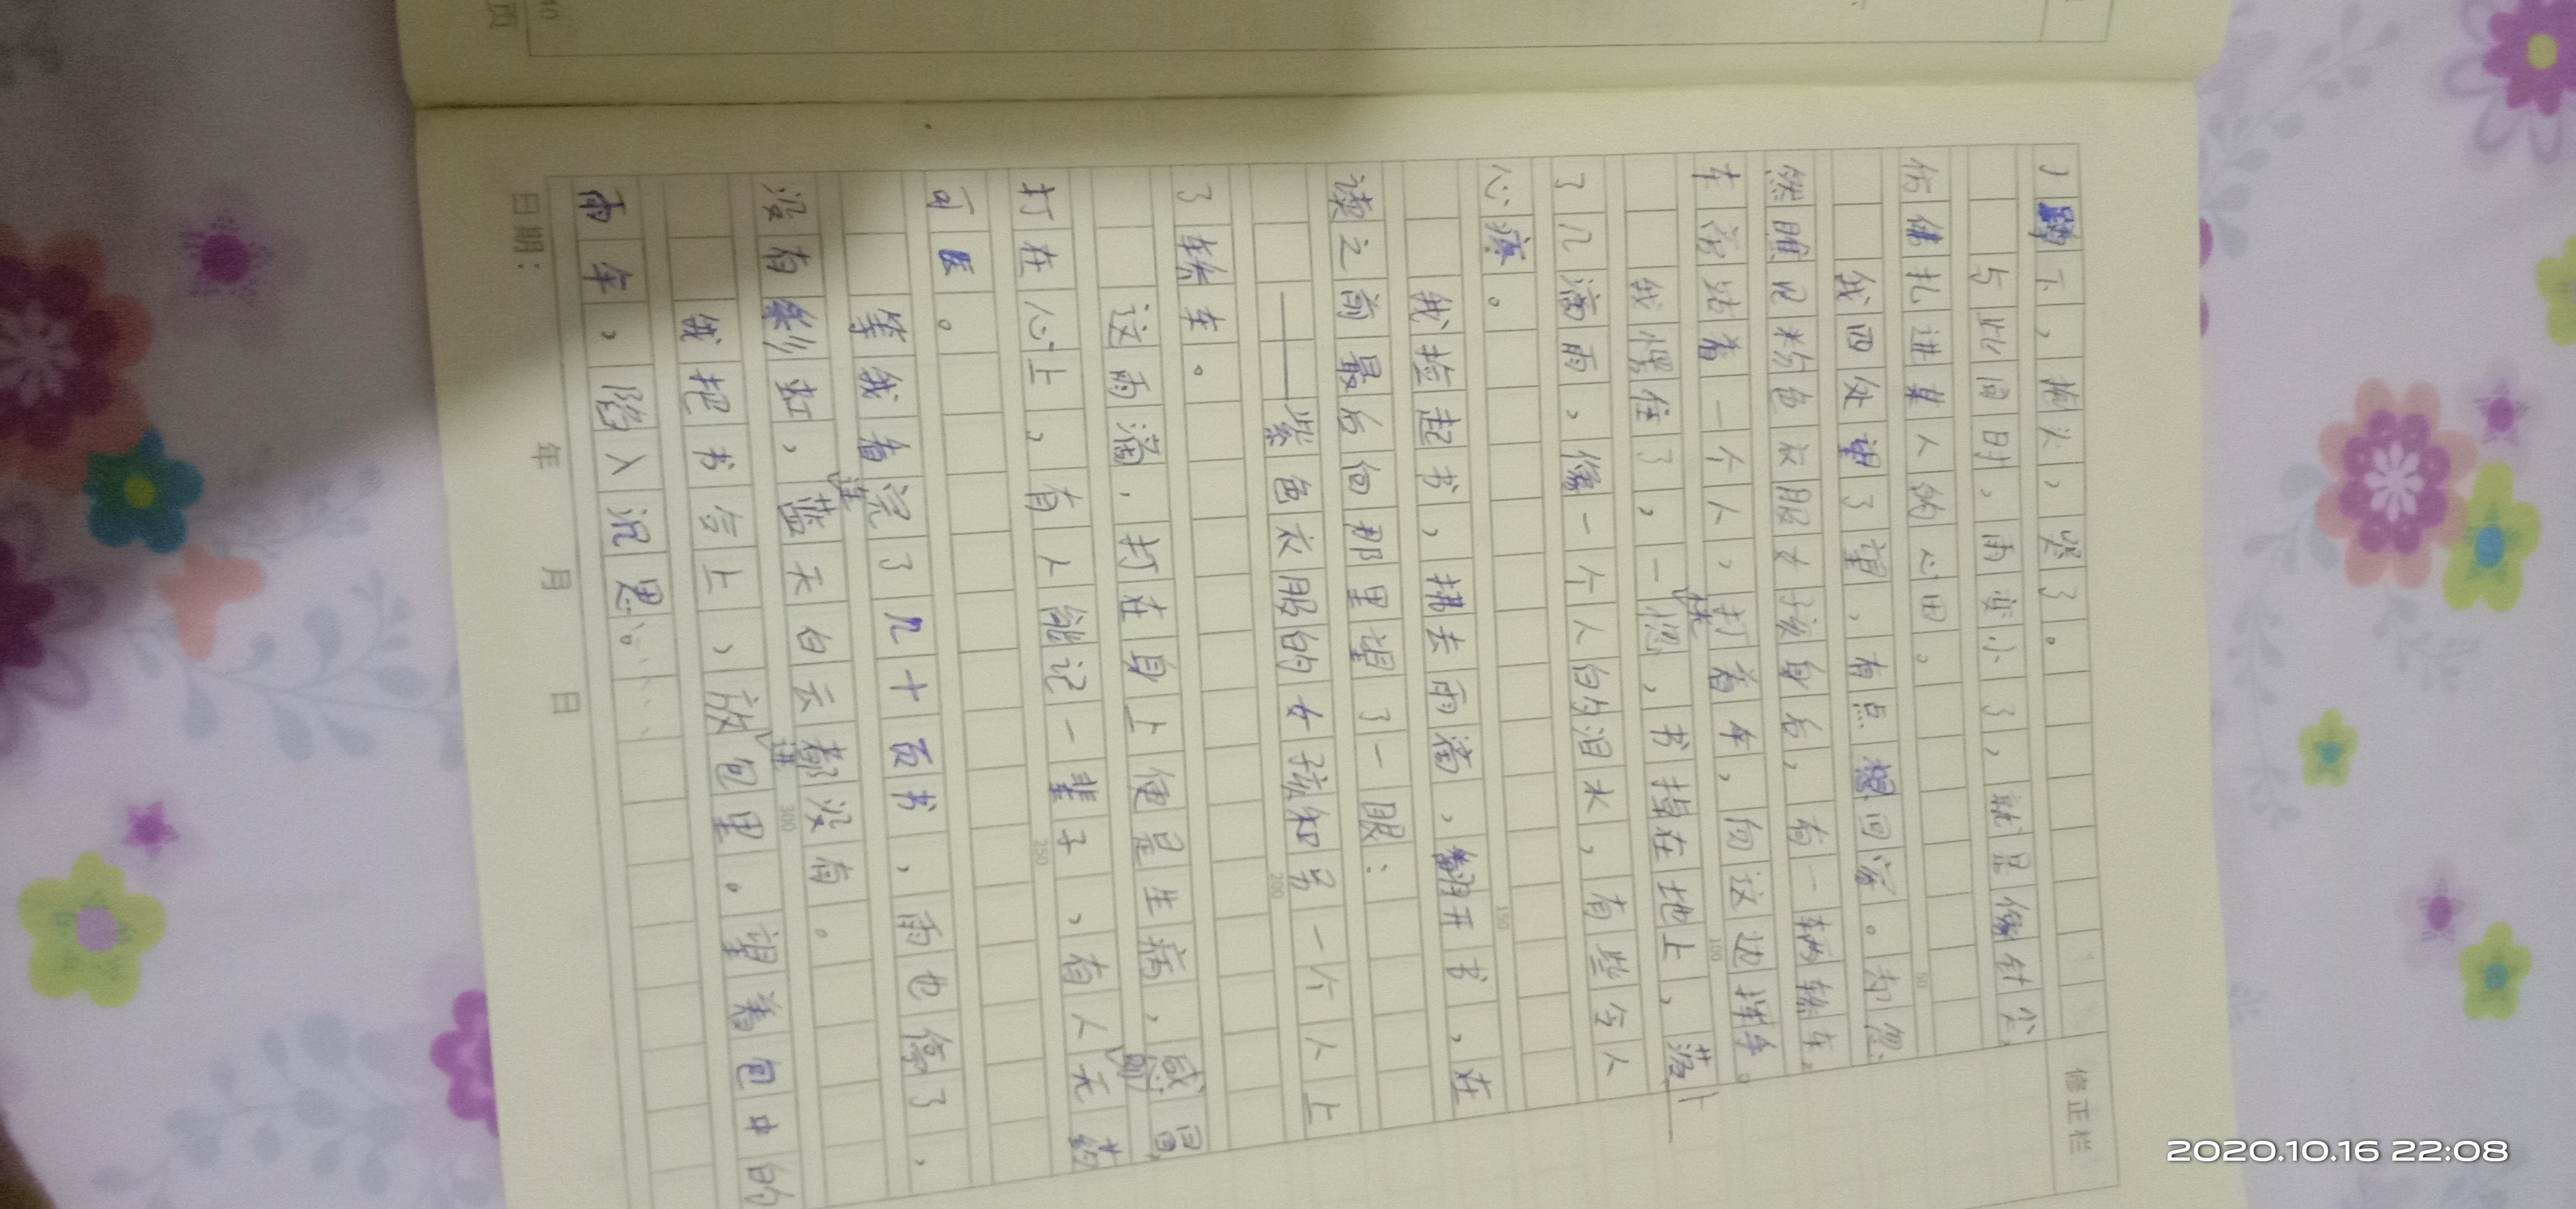 了蹲下，抱头，哭了。
与此同时，雨变小了，就是像针尖，
仿佛扎进某人的心田。
我四处望了望，有点想回家。却忽
然瞧见粉色衣服女孩身后，有一辆轿车，
车旁站着一个人，打着伞，向这边挥手。
我愣住了，一恍惚，书掉在地上，落
了几滴雨，像一个人的泪水，有些令人
心疼。
我捡起书，拂去雨滴，翻开书，在
读之前最后向那里望了一眼：
——紫色衣服的女孩和另一个人上
了轿车。
这雨滴，打在身上便是生病，感冒，
打在心上，有人能记一辈子，有人无药
可医。
等我看完了几十页书，雨也停了，
没有彩虹，连蓝天白云都没有。
我把书合上，放进包里。望着包中的
雨伞，陷入沉思……。
修正栏
日期： 年 月 日
50
100
150
200
250
300
页
2020.10.16 22:08